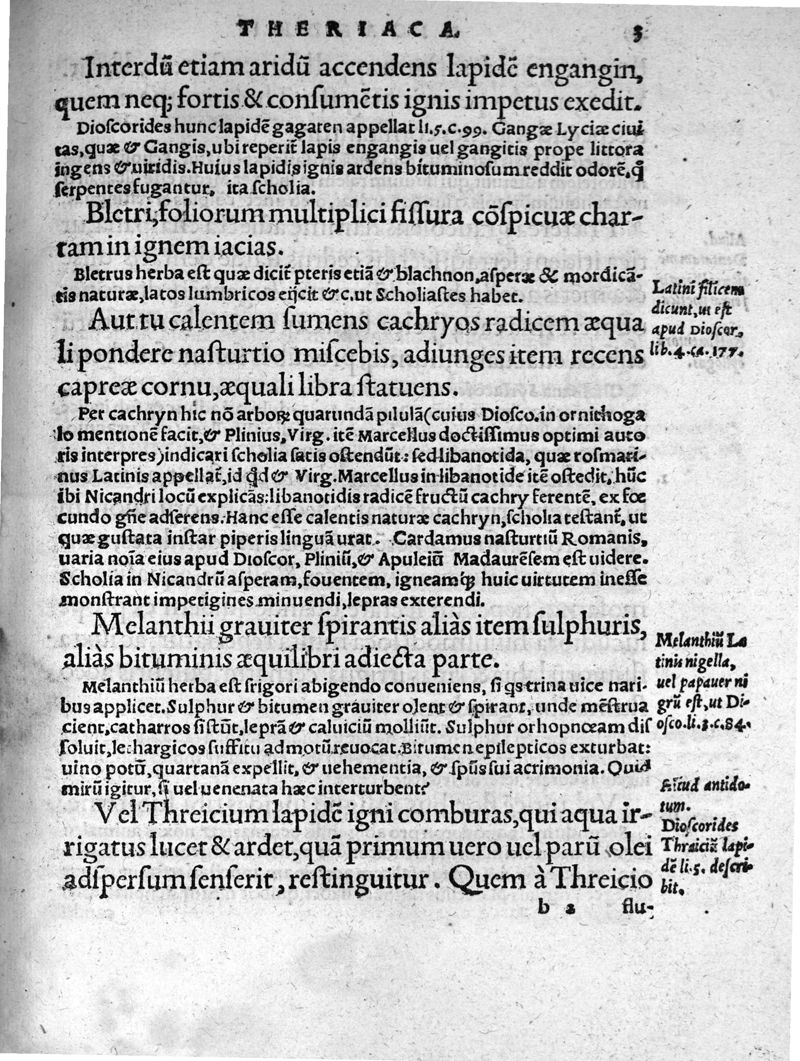 THERIACA. 5
Interdũ etiam aridũ accendens lapidẽ engangin,
quem neq; fortis & consumẽtis ignis impetus exedit.
Dioscorides hunc lapidẽ gagaten appellat li.5.c.99. Gangæ Lyciæ ciui
tas, quæ & Gangis, ubi reperit̃ lapis engangis uel gangitis prope littora
ingens & uiridis. Huius lapidis ignis ardens bituminosum reddit odorẽ, q̃
serpentes fugantur, ita scholia.
Bletri, foliorum multiplici fissura cõspicuæ char-
tam in ignem iacias.
Bletrus herba est quæ dicit̃ pteris etiã & blachnon, asperæ & mordicã-
tis naturæ, latos lumbricos eijcit &c. ut Scholiastes habet.
Latini filicem
dicunt, ut est
apud Dioscor.
lib.4.ca.177.
Aut tu calentem sumens cachryos radicem æqua
li pondere nasturtio miscebis, adiunges item recens
capreæ cornu, æquali libra statuens.
Per cachryn hic nõ arborꝝ quarundã pilulã (cuius Diosco. in ornithoga
lo mentionẽ facit, & Plinius, Virg. itẽ Marcellus doctissimus optimi auto
ris interpres) indicari scholia satis ostendũt: sed libanotida, quæ rosmari-
nus Latinis appellat̃, id qđ & Virg. Marcellus in libanotide itẽ ostẽdit, hũc
ibi Nicandri locũ explicãs: libanotidis radicẽ fructũ cachry ferentẽ, ex fœ
cundo gñe adserens. Hanc esse calentis naturæ cachryn, scholia testant̃, ut
quæ gustata instar piperis linguã urat. Cardamus nasturtiũ Romanis,
uaria noĩa eius apud Dioscor, Pliniũ, & Apuleiũ Madaurẽsem est uidere.
Scholia in Nicandrũ asperam, fouentem, igneamq; huic uirtutem inesse
monstrant impetigines minuendi, lepras exterendi.
Melanthii grauiter spirantis aliàs item sulphuris,
aliàs bituminis æquilibri adiecta parte.
Melanthiũ La
tinis nigella,
uel papauer ni
grũ est, ut Di-
osco. li.3.c.84.
Melanthiũ herba est frigori abigendo conueniens, si qs trina uice nari-
bus applicet. Sulphur & bitumen grauiter olent & spirant, unde mẽstrua
cient, catharros sistũt, leprã & caluiciũ molliũt. Sulphur orhopnœam dis
soluit, lethargicos suffitu admotũ reuocat. Bitumen epilepticos exturbat:
uino potũ, quartanã expellit, & uehementia, & spũs sui acrimonia. Quid
mirũ igitur, si uel uenenata hæc interturbent?
Aliud antido-
tum.
Dioscorides
Thraiciã lapi-
dẽ li.5. descri-
bit.
Vel Threicium lapidẽ igni comburas, qui aqua ir-
rigatus lucet & ardet, quã primum uero uel parũ olei
adspersum senserit, restinguitur. Quem à Threicio
b 2 flu-